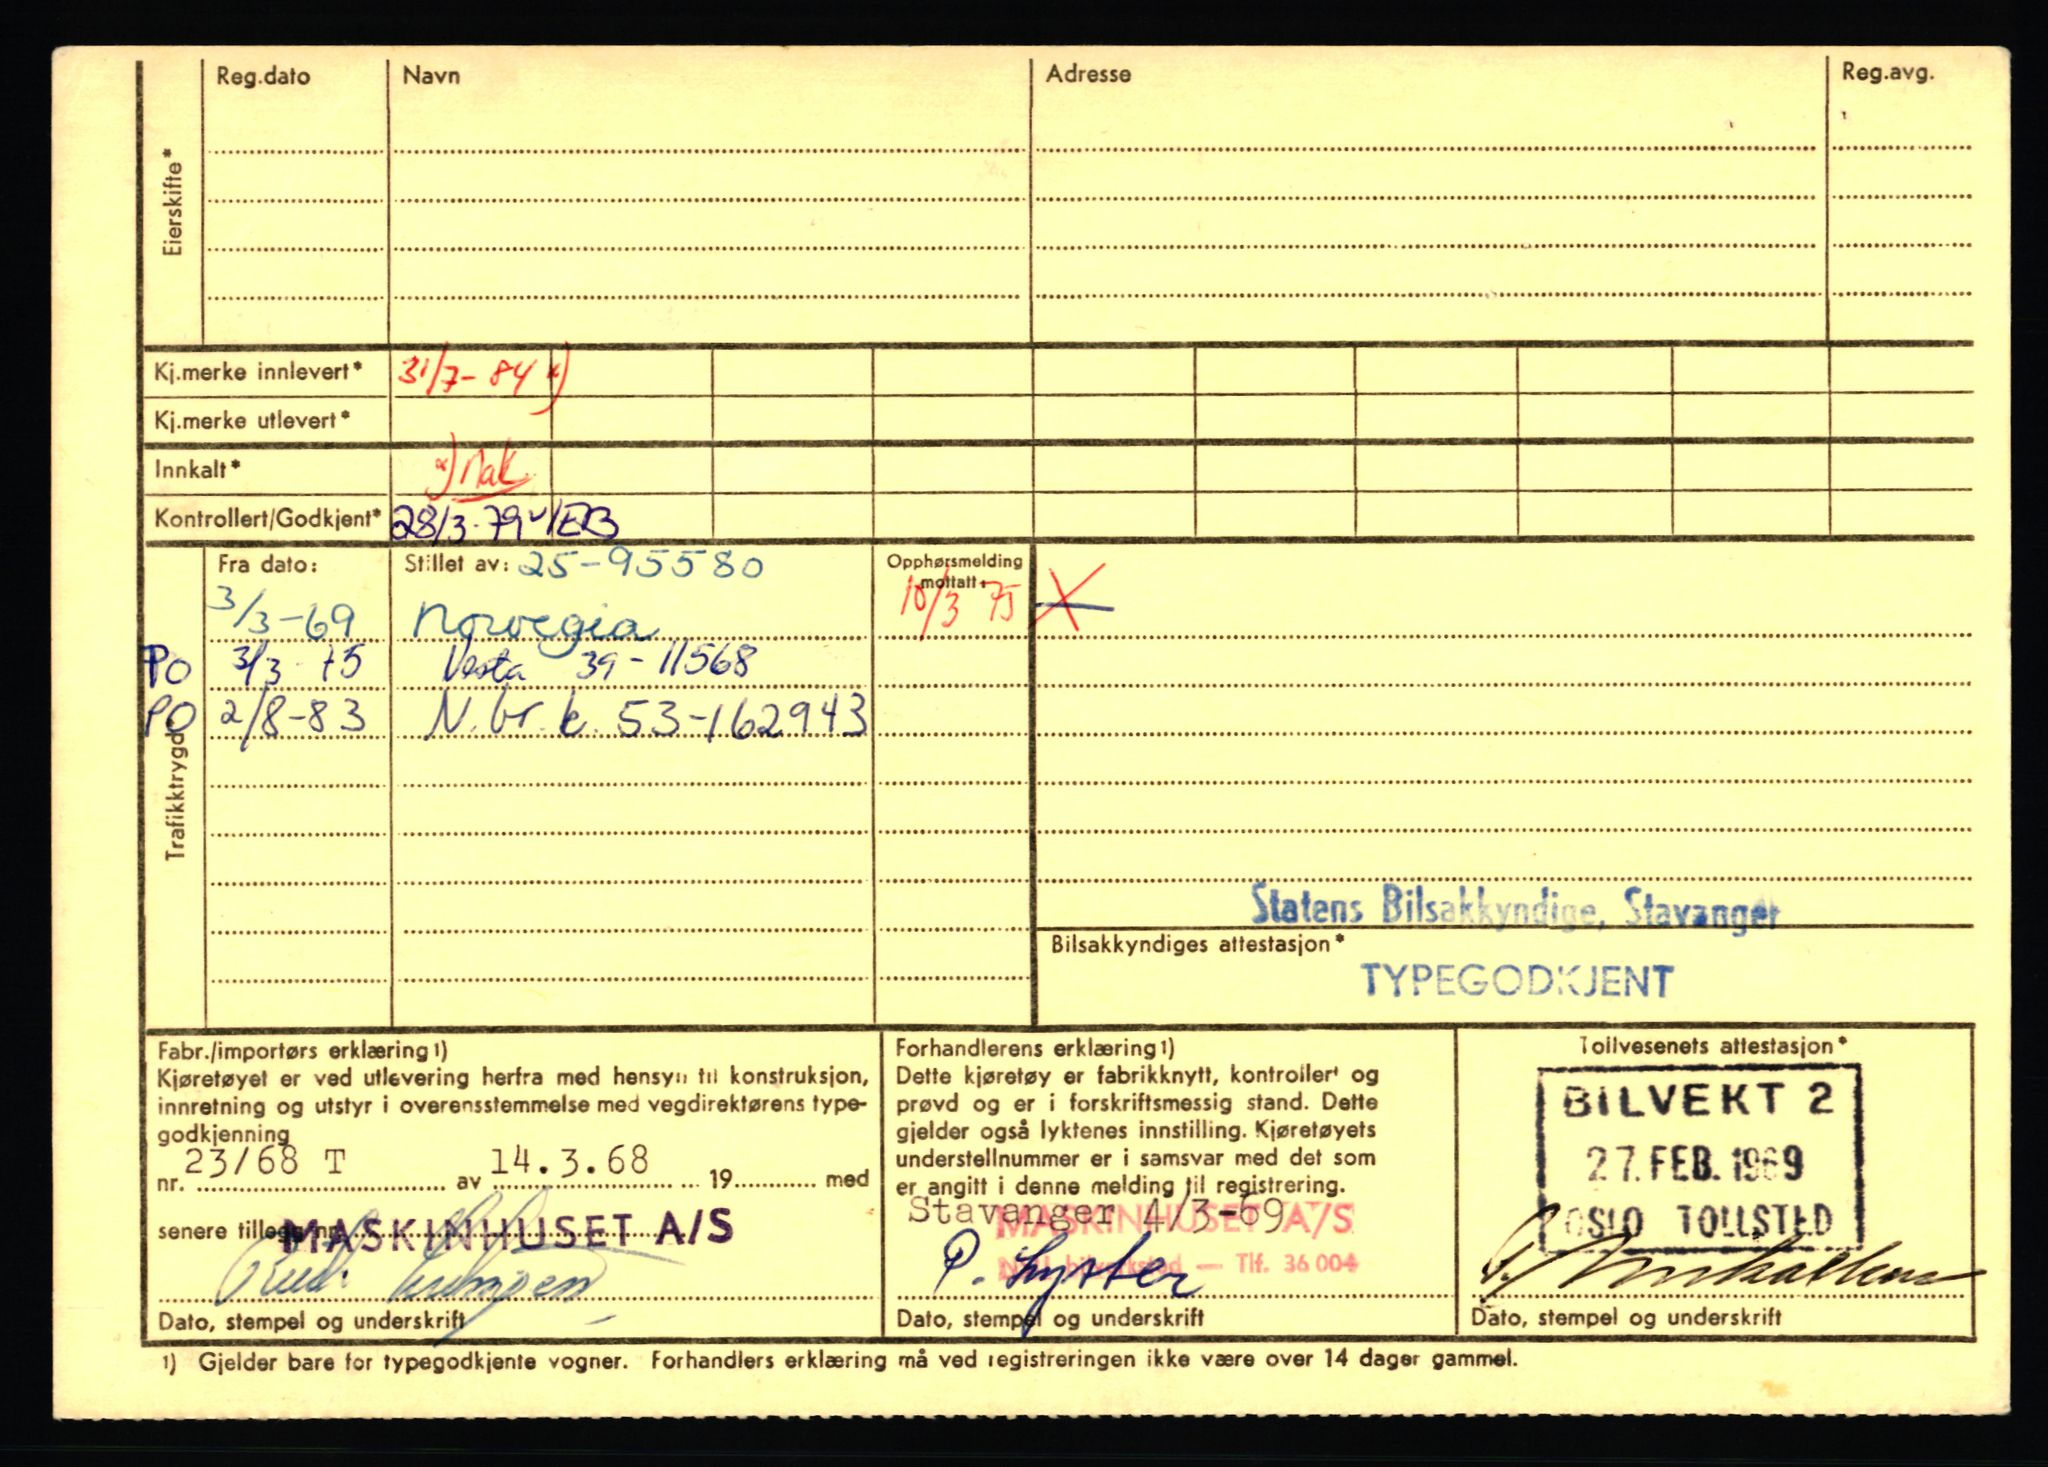 Reg.dato Navn Adresse Reg.avg.
Eierskifte*
Kj.merke innlevert* 31/7-84 *)
Kj.merke utlevert*
Innkalt* *) Mak
Kontrollert/Godkjent* 28/3-79 /EB
Trafikktrygd
Fra dato: Stillet av: 25-95580 Opphørsmelding mottatt.
3/3-69 Norvegia 10/3 75 X
PO 3/3 75 Vesta 39-11568
PO 2/8-83 N.br.k. 53-162943
Statens Bilsakkyndige, Stavanger
Bilsakkyndiges attestasjon*
TYPEGODKJENT
Fabr./importørs erklæring 1)
Kjøretøyet er ved utlevering herfra med hensyn til konstruksjon,
innretning og utstyr i overensstemmelse med vegdirektørens type-
godkjenning
nr. 23/68 T av 14.3.68 19 med
senere tillegg nr.
MASKINHUSET A/S
Dato, stempel og underskrift
Forhandlerens erklæring 1)
Dette kjøretøy er fabrikknytt, kontrollert og
prøvd og er i forskriftsmessig stand. Dette
gjelder også lyktenes innstilling. Kjøretøyets
understellnummer er i samsvar med det som
er angitt i denne melding til registrering.
Stavanger 4/3-69
MASKINHUSET A/S
Tlf. 36 004
P. Lyster
Dato, stempel og underskrift
Tollvesenets attestasjon*
BILVEKT 2
27. FEB. 1969
OSLO TOLLSTED
Dato, stempel og underskrift
1) Gjelder bare for typegodkjente vogner. Forhandlers erklæring må ved registreringen ikke være over 14 dager gammel.